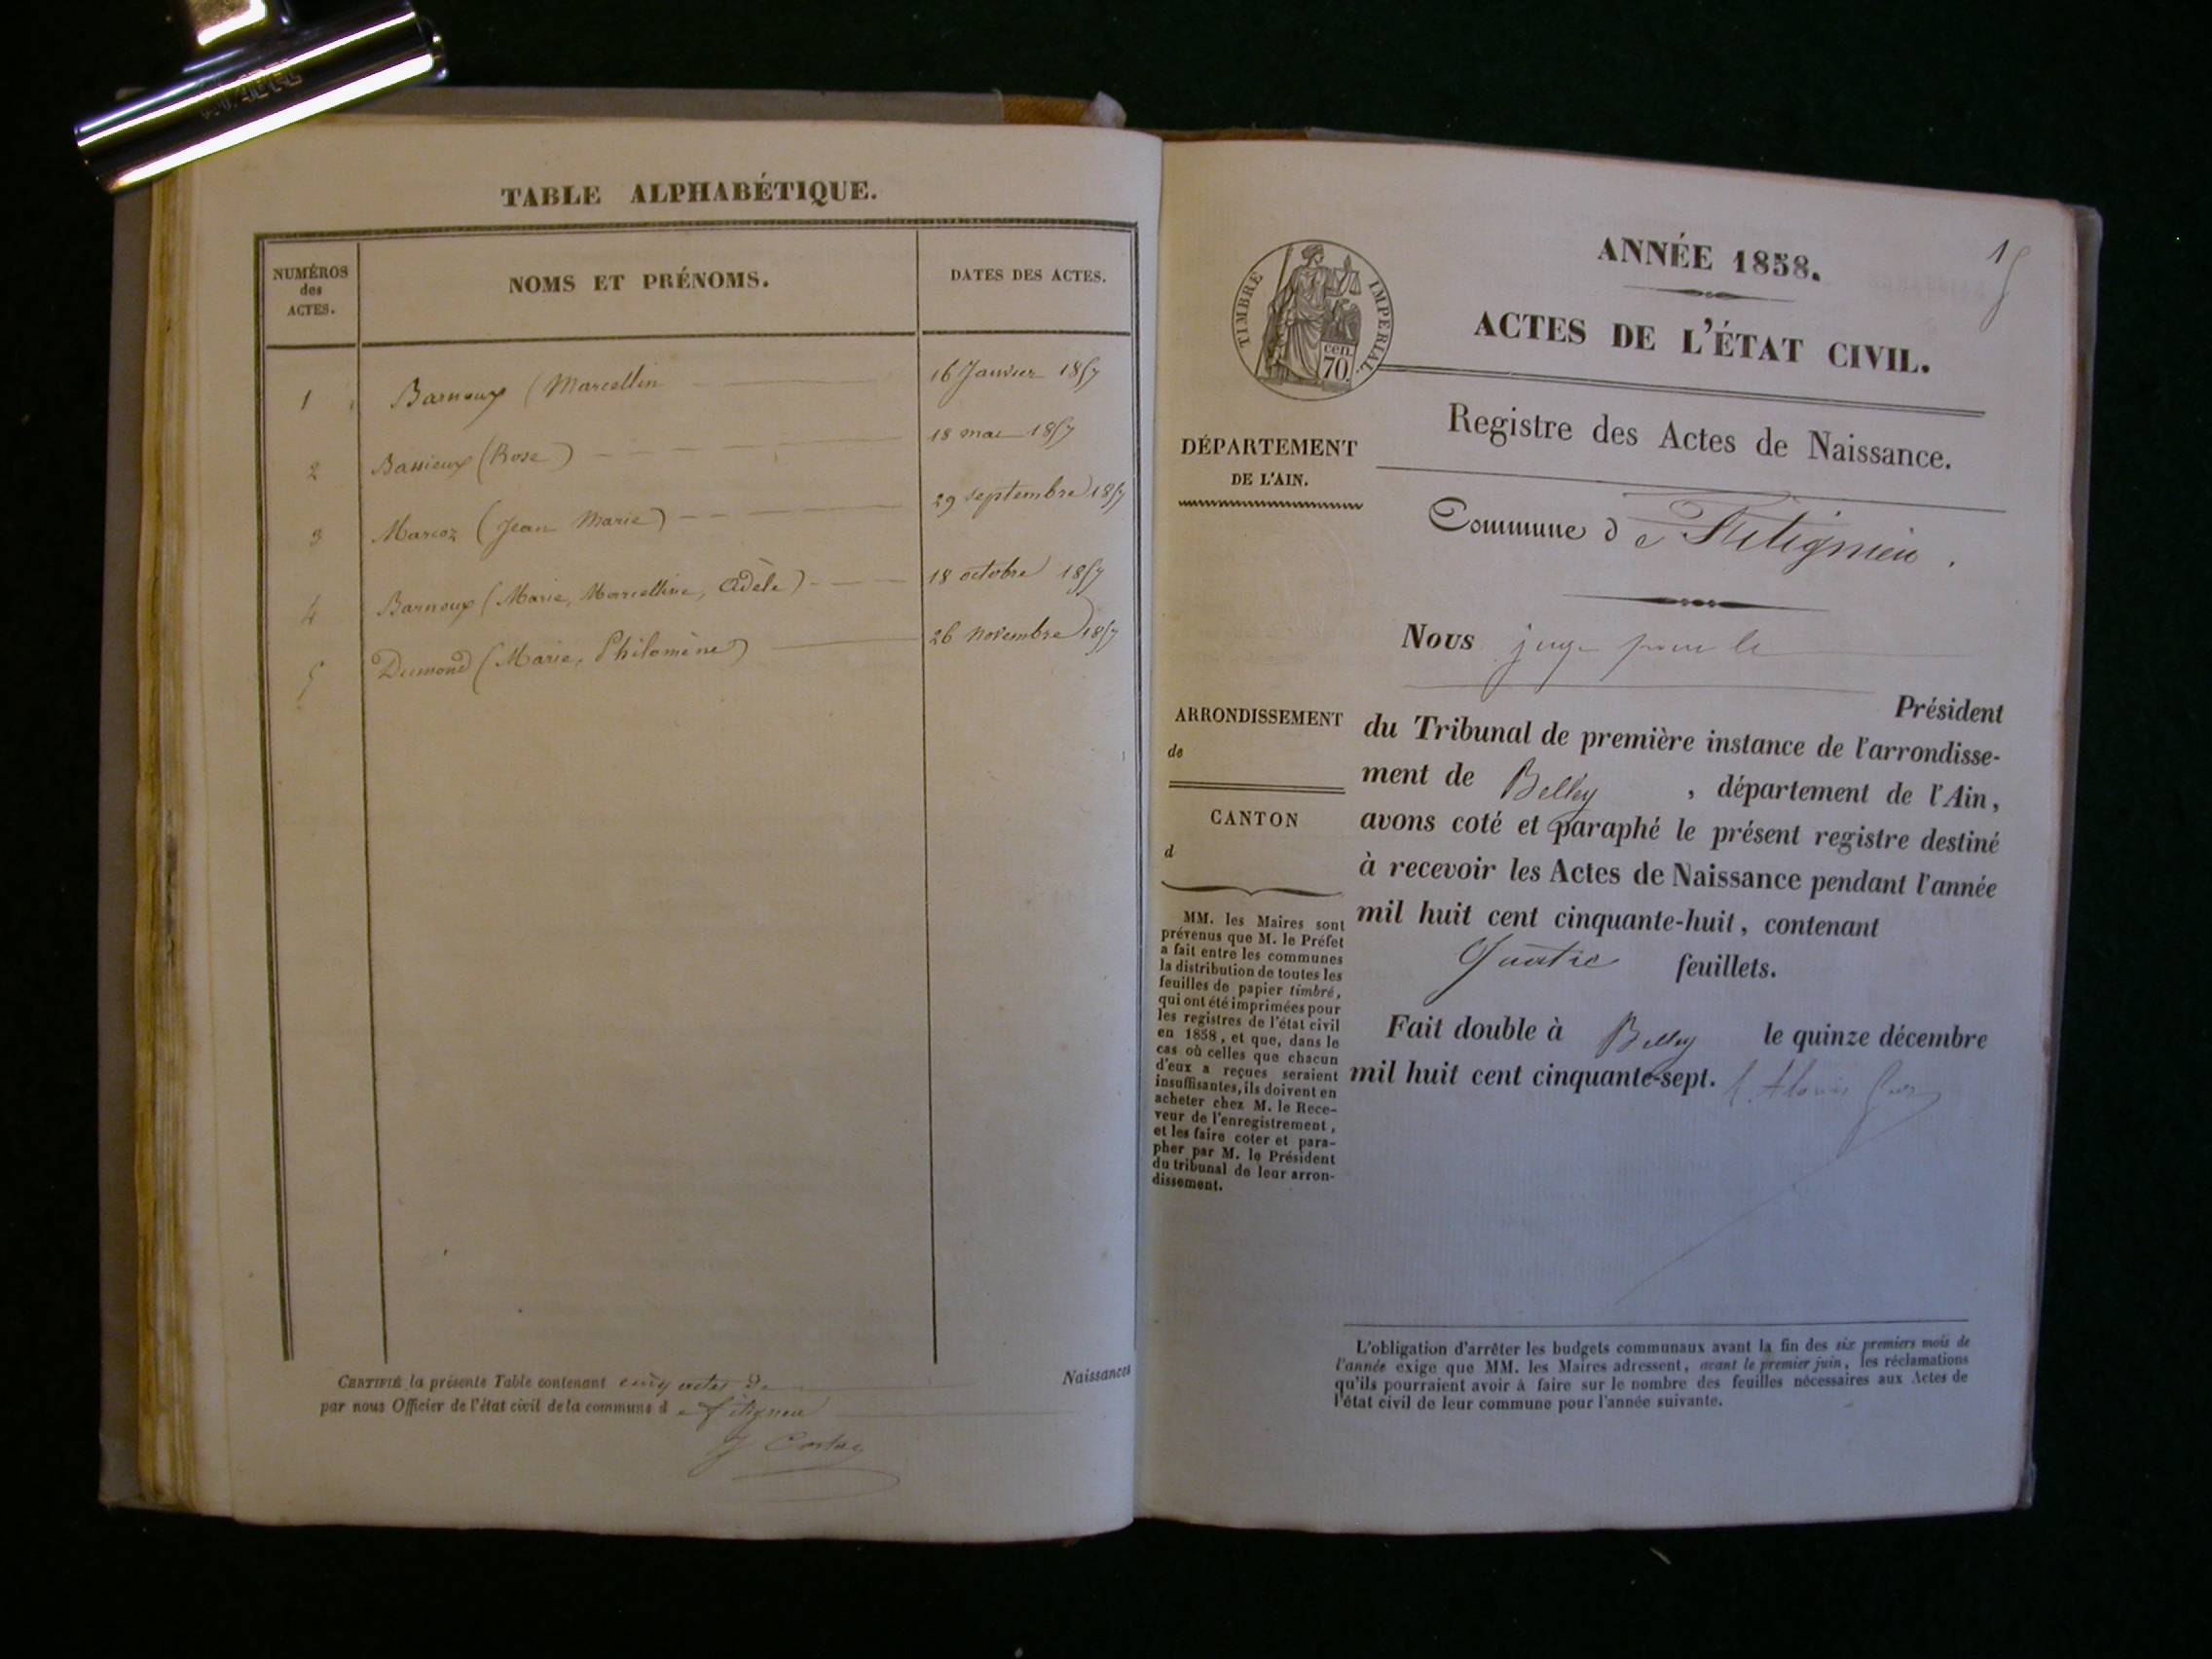 TABLE ALPHABÉTIQUE.
NUMÉROS des ACTES.
NOMS ET PRÉNOMS.
DATES DES ACTES.
1 Barnoux (Marcellin 16 Janvier 1857
2 Bassieux (Rose) 18 mai 1857
3 Marcoz (Jean Marie) 29 septembre 1857
4 Barnoux (Marie, Marcelline, Adèle) 18 octobre 1857
5 Dumond (Marie, Philomène) 26 novembre 1857
CERTIFIÉ la présente Table contenant cinq actes de
par nous Officier de l'état civil de la commune d e fitignieu
Naissances
ANNÉE 1858.
1
ACTES DE L'ÉTAT CIVIL.
TIMBRE IMPERIAL.
cen. 70.
Registre des Actes de Naissance.
DÉPARTEMENT
DE L'AIN.
Commune d e Fitignieu.
Nous juge pour le
Président
du Tribunal de première instance de l'arrondisse-
ment de Belley, département de l'Ain,
avons coté et paraphé le présent registre destiné
à recevoir les Actes de Naissance pendant l'année
mil huit cent cinquante-huit, contenant
Quatre feuillets.
Fait double à Belley le quinze décembre
mil huit cent cinquante-sept.
ARRONDISSEMENT
de
CANTON
d
MM. les Maires sont
prévenus que M. le Préfet
a fait entre les communes
la distribution de toutes les
feuilles de papier timbré,
qui ont été imprimées pour
les registres de l'état civil
en 1858, et que, dans le
cas où celles que chacun
d'eux a reçues seraient
insuffisantes, ils doivent en
acheter chez M. le Rece-
veur de l'enregistrement,
et les faire coter et para-
pher par M. le Président
du tribunal de leur arron-
dissement.
L'obligation d'arrêter les budgets communaux avant la fin des six premiers mois de
l'année exige que MM. les Maires adressent, avant le premier juin, les réclamations
qu'ils pourraient avoir à faire sur le nombre des feuilles nécessaires aux Actes de
l'état civil de leur commune pour l'année suivante.